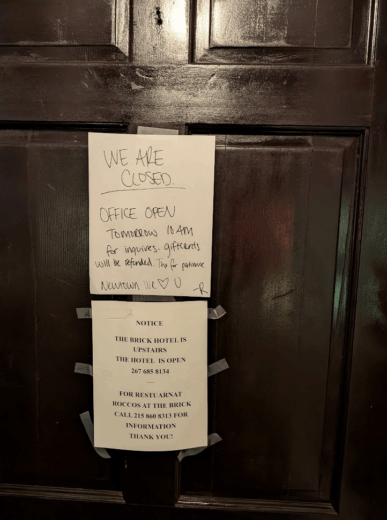 WE ARE
CLOSED.
OFFICE OPEN
TOMORROW 10 AM
for inquires. giftcards
will be refunded. Thx for patience
Newtown We ♡ U
-R
NOTICE
THE BRICK HOTEL IS
UPSTAIRS
THE HOTEL IS OPEN
267 685 8134
—
FOR RESTUARNAT
ROCCOS AT THE BRICK
CALL 215 860 8313 FOR
INFORMATION
THANK YOU!